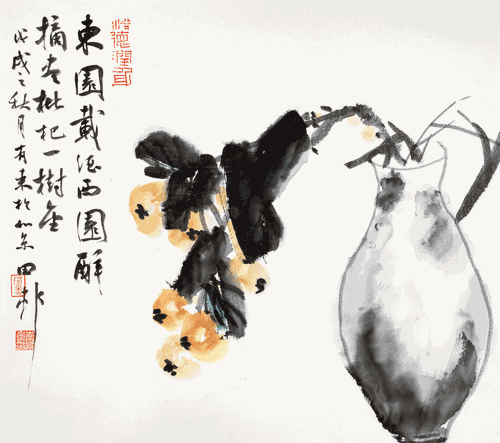 東園載酒西園醉
摘盡枇杷一樹金
戊戌之秋月有東於北京